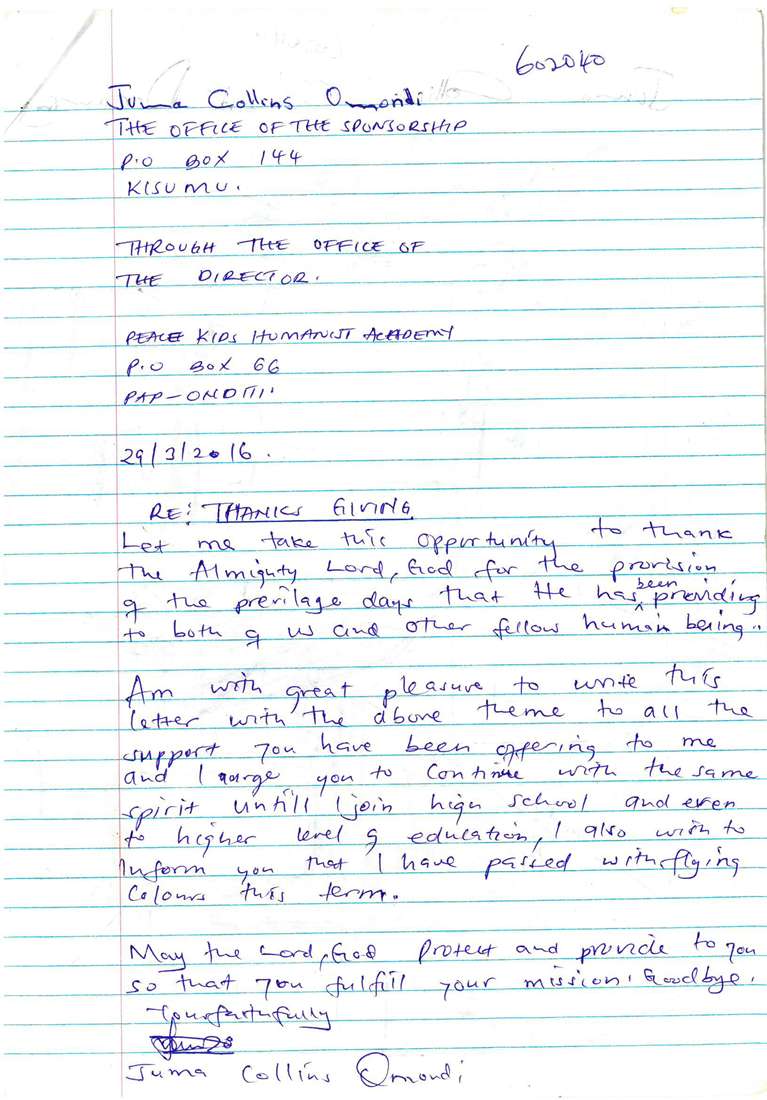 602040
Juma Collins Omondi
THE OFFICE OF THE SPONSORSHIP
P.O BOX 144
KISUMU.
THROUGH THE OFFICE OF
THE DIRECTOR.
PEACE KIDS HUMANIST ACADEMY
P.O BOX 66
PAP-ONDITI.
29/3/2016.
RE: THANKS GIVING
Let me take this opportunity to thank
the Almighty Lord, God for the provision
of the previlage days that He has been providing
to both of us and other fellow human being..
Am with great pleasure to write this
letter with the above theme to all the
support you have been offering to me
and I urge you to continue with the same
spirit untill I join high school and even
to higher level of education, I also wish to
Inform you that I have passed with flying
Colours this term.
May the Lord, God protect and provide to you
so that you fulfill your mission. Goodbye.
Yourfaithfully
Juma Collins Omondi